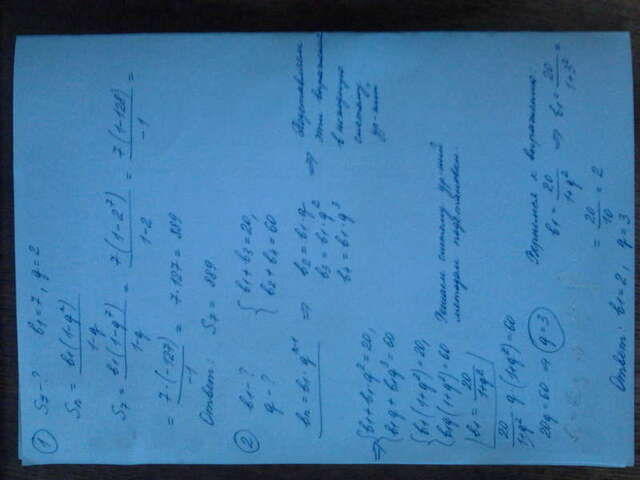 ① S₇ - ? b₁ = 7, q = 2
Sₙ = b₁(1-qⁿ) / 1-q
S₇ = b₁(1-q⁷) / 1-q = 7(1-2⁷) / 1-2 = 7(1-128) / -1 =
= 7·(-127) / -1 = 7·127 = 889
Ответ: S₇ = 889.
② b₁ - ? { b₁ + b₃ = 20,
q - ? b₂ + b₄ = 60
bₙ = b₁·qⁿ⁻¹ ⇒ b₂ = b₁·q ⇒ Подставляем
b₃ = b₁·q² эти выражения
b₄ = b₁·q³ в исходную
систему
ур-ний
⇒ { b₁ + b₁q² = 20,
b₁q + b₁q³ = 60
{ b₁(1+q²) = 20, Решаем систему ур-ний
b₁q(1+q²) = 60 методом подстановки.
b₁ = 20 / 1+q²
20 / 1+q² q·(1+q²) = 60
20q = 60 ⇒ q = 3
Вернёмся к выражению:
b₁ = 20 / 1+q² ⇒ b₁ = 20 / 1+3² =
= 20 / 10 = 2
Ответ: b₁ = 2, q = 3